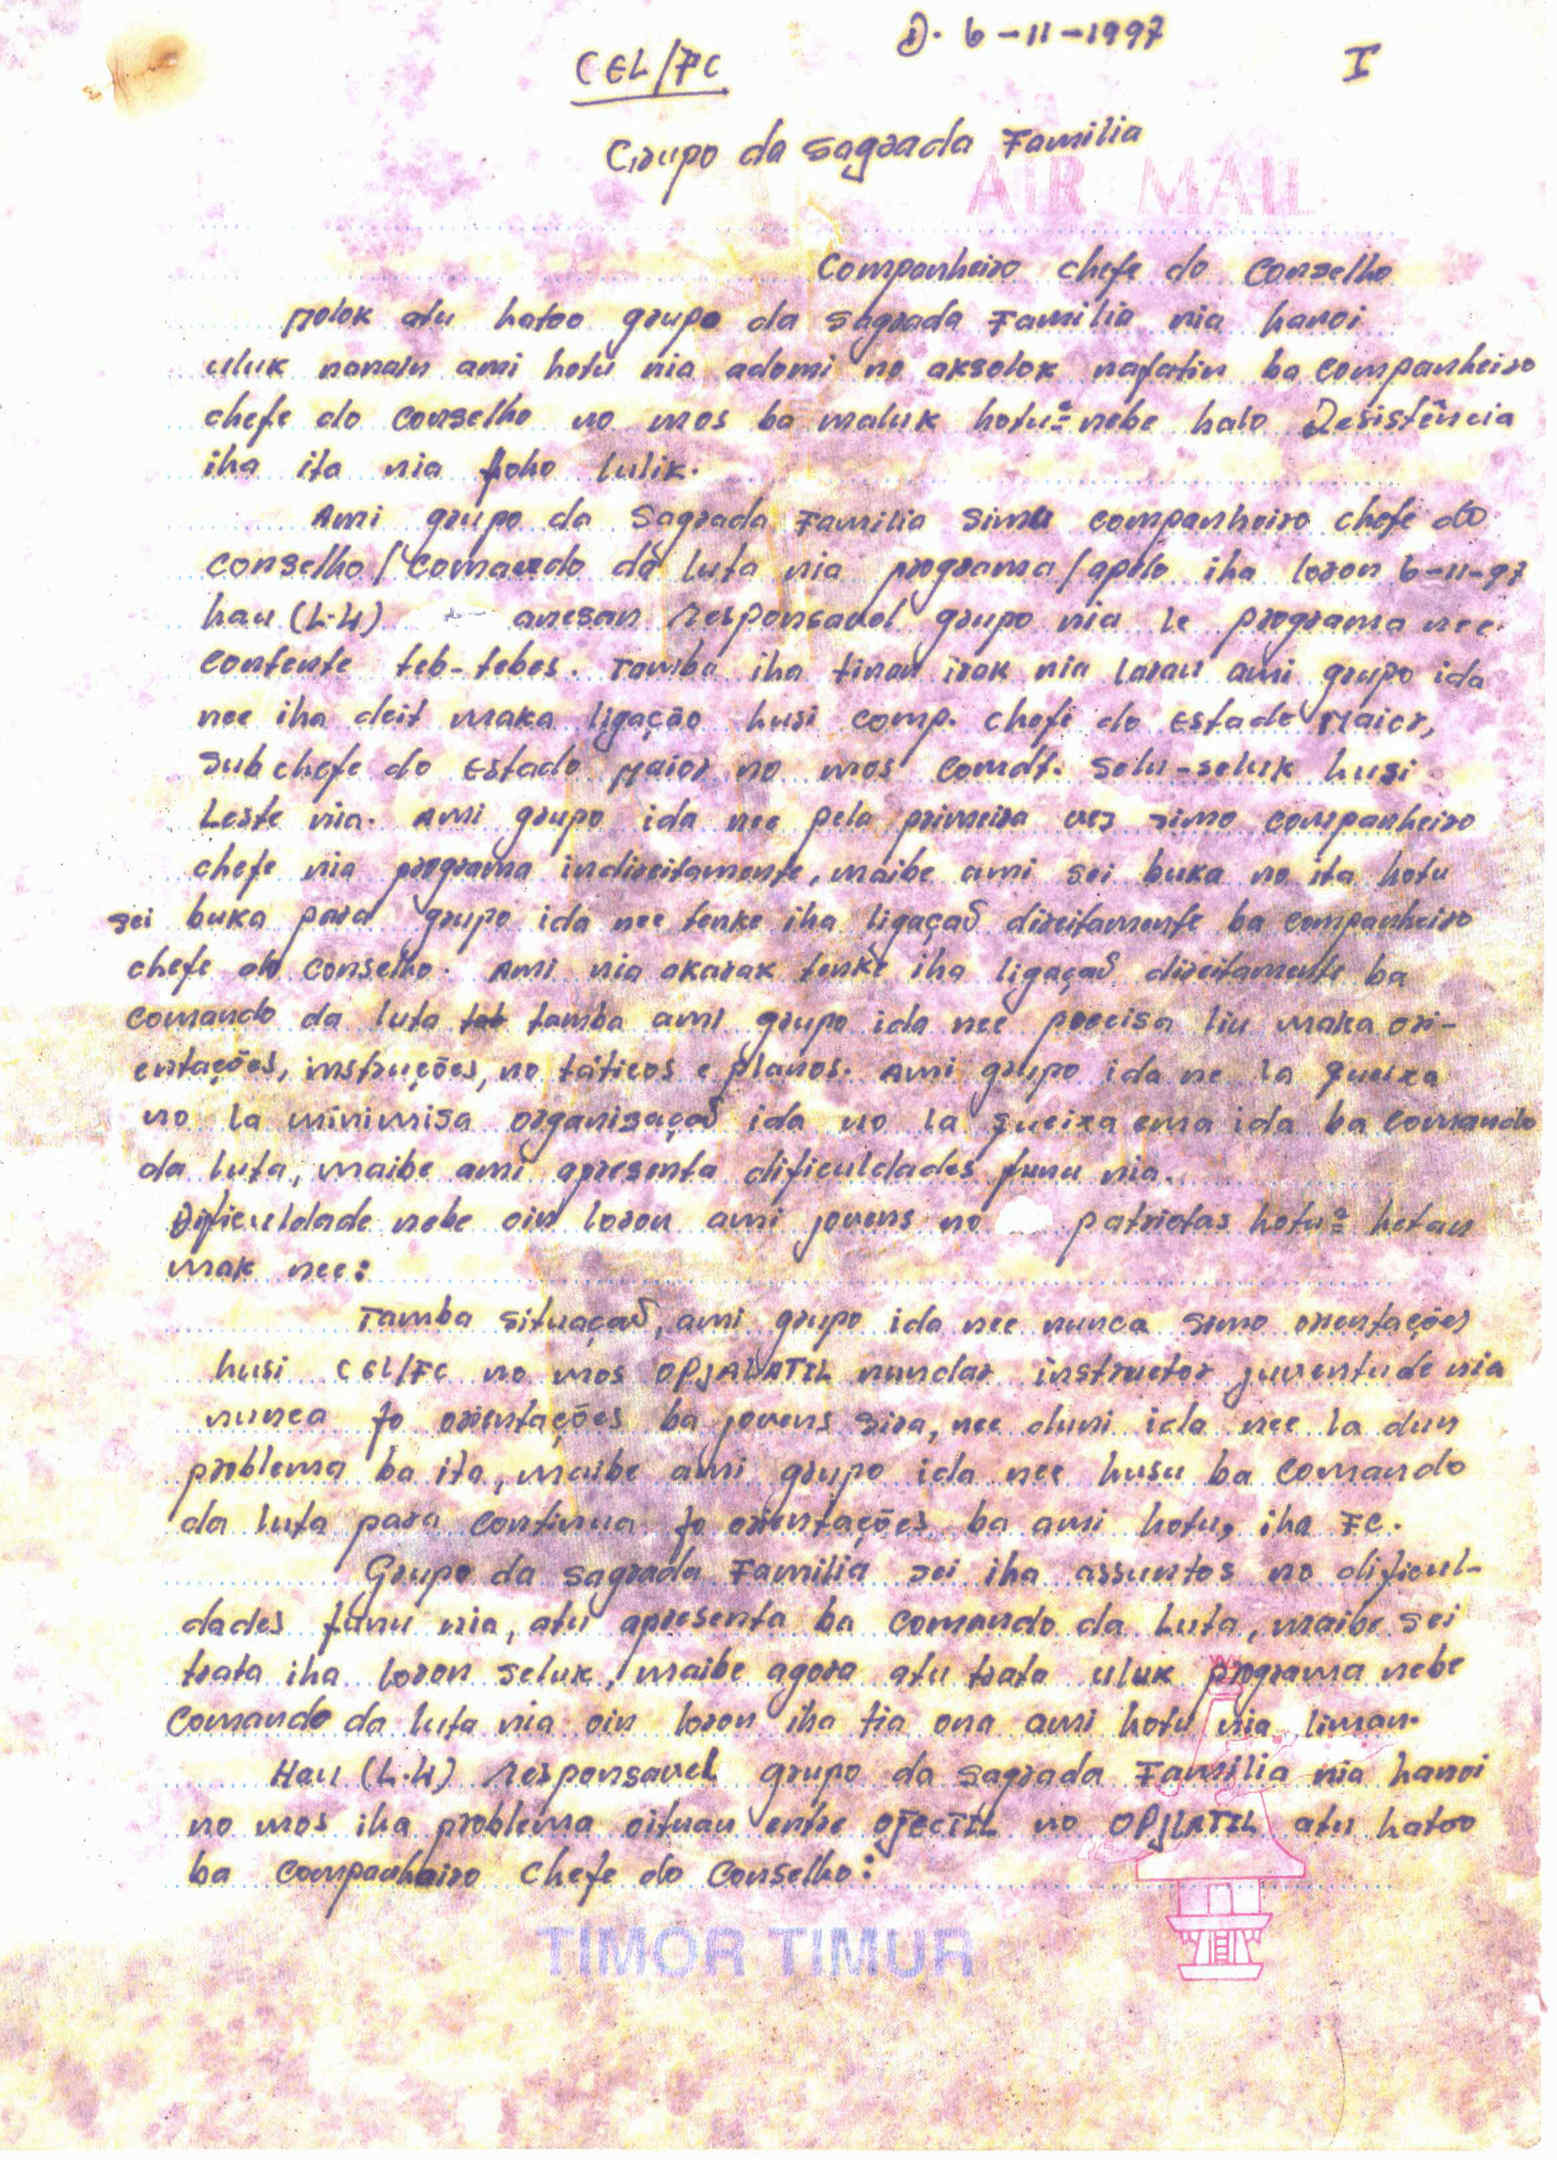 D. 6-11-1997
CEL/FC
I
Grupo da Sagrada Familia
AIR MAIL
Companheiro chefe do Conselho
molok atu hatoo grupo da Sagrada Familia nia hanoi
uluk nanain ami hotu nia adomi no aksolok nafatin ba Companheiro
chefe do Conselho no mos ba maluk hotu² nebe halo Resistência
iha ita nia foho lulik.
Ami grupo da Sagrada Familia simu companheiro chefe do
Conselho/Comando da luta nia programa/apelo iha loron 6-11-97
hau (L.4) anesan responsavel grupo nia le programa nee
contente teb-tebes. Tamba iha tinan nia laran ami grupo ida
nee iha deit maka ligação husi comp. chefe do Estado Maior,
Subchefe do Estado Maior no mos Comdt. Selu-seluk husi
Leste nia. Ami grupo ida nee pela primeira vez simo companheiro
chefe nia programa indireitamente, maibe ami sei buka no ita hotu
sei buka para grupo ida nee tenke iha ligação direitamente ba companheiro
chefe do Conselho. Ami nia akarak tenke iha ligação direitamente ba
comando da luta tamba ami grupo ida nee precisa liu maka ori-
entações, instruções, no táticos e planos. Ami grupo ida ne la queixa
no la minimisa organisação ida no la queixa ema ida ba comando
da luta, maibe ami apresenta dificuldades funu nia.
Dificuldade nebe oin loron ami jovens no patriotas hotu² hetan
mak nee:
Tamba situação, ami grupo ida nee nunca simo orientações
husi CEL/FC no mos nundar instructor juventude nia
nunca fo orientações ba jovens sira, nee duni ida nee la dun
problema ba ita, maibe ami grupo ida nee husu ba Comando
da luta para continua fo orientações ba ami hotu, iha FC.
Grupo da Sagrada Familia sei iha assuntos no dificul-
dades funu nia, atu apresenta ba Comando da Luta, maibe sei
trata iha loron seluk, maibe agora atu trata uluk programa nebe
Comando da luta nia oin loron iha tia ona ami hotu nia liman.
Hau (L.4) responsavel grupo da Sagrada Familia nia hanoi
no mos iha problema oituan entre OJECTIL no OPJLATIL atu hatoo
ba Companheiro Chefe do Conselho:
TIMOR TIMUR